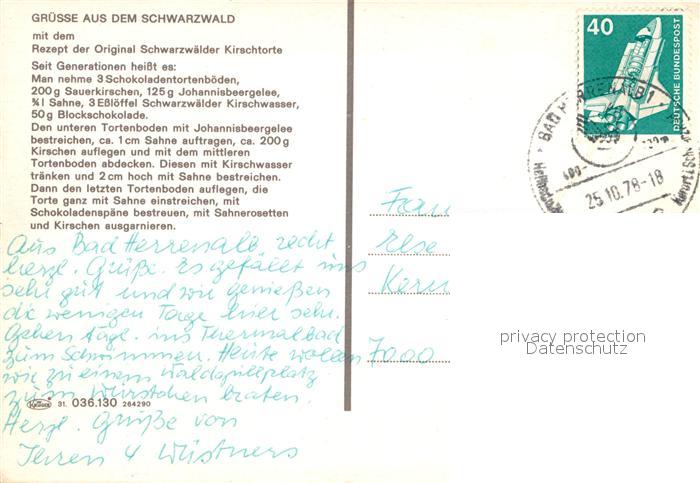 GRÜSSE AUS DEM SCHWARZWALD
mit dem
Rezept der Original Schwarzwälder Kirschtorte
Seit Generationen heißt es:
Man nehme 3 Schokoladentortenböden,
200 g Sauerkirschen, 125 g Johannisbeergelee,
¾ l Sahne, 3 Eßlöffel Schwarzwälder Kirschwasser,
50 g Blockschokolade.
Den unteren Tortenboden mit Johannisbeergelee
bestreichen, ca. 1 cm Sahne auftragen, ca. 200 g
Kirschen auflegen und mit dem mittleren
Tortenboden abdecken. Diesen mit Kirschwasser
tränken und 2 cm hoch mit Sahne bestreichen.
Dann den letzten Tortenboden auflegen, die
Torte ganz mit Sahne einstreichen, mit
Schokoladenspäne bestreuen, mit Sahnerosetten
und Kirschen ausgarnieren.
Aus Bad Herrenalb recht
herzl. Grüße. Es gefällt uns
sehr gut und wir genießen
die wenigen Tage hier sehr.
Gehen tägl. ins Thermalbad
zum Schwimmen. Heute wollen
wir zu einem Waldgrillplatz
zum Würstchen braten.
31. 036.130 264290
Herzl. Grüße von
Ihren 4 Wüstners
40
DEUTSCHE BUNDESPOST
BAD HERRENALB 1
25.10.78-18
Frau
Else
Kern
7000
privacy protection
Datenschutz